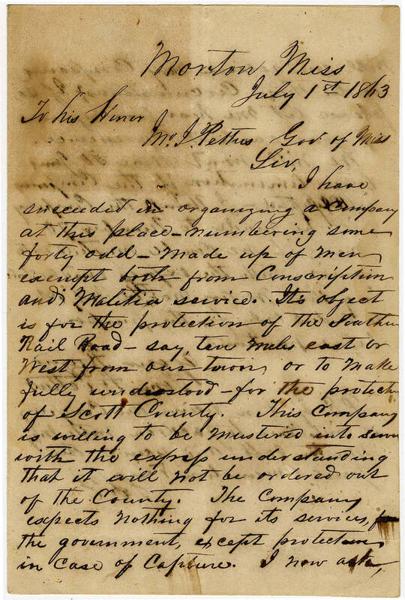 Morton Miss
July 1st 1863
To his Honor
Jno J Pettus Gov of Miss
Sir,
I have
succeeded in organizing a Company
at this place - numbering some
forty odd - made up of men
exempt both from Conscription
and Malitia service. Its object
is for the protection of the Southern
Rail Road - say ten miles east or
West from our town, or to make
fully understood - for the protection
of Scott County. This Company
is willing to be mustered into service
with the express understanding
that it will not be ordered out
of the County. The Company
expects nothing for its services, from
the government, except protection
in case of Capture. I now